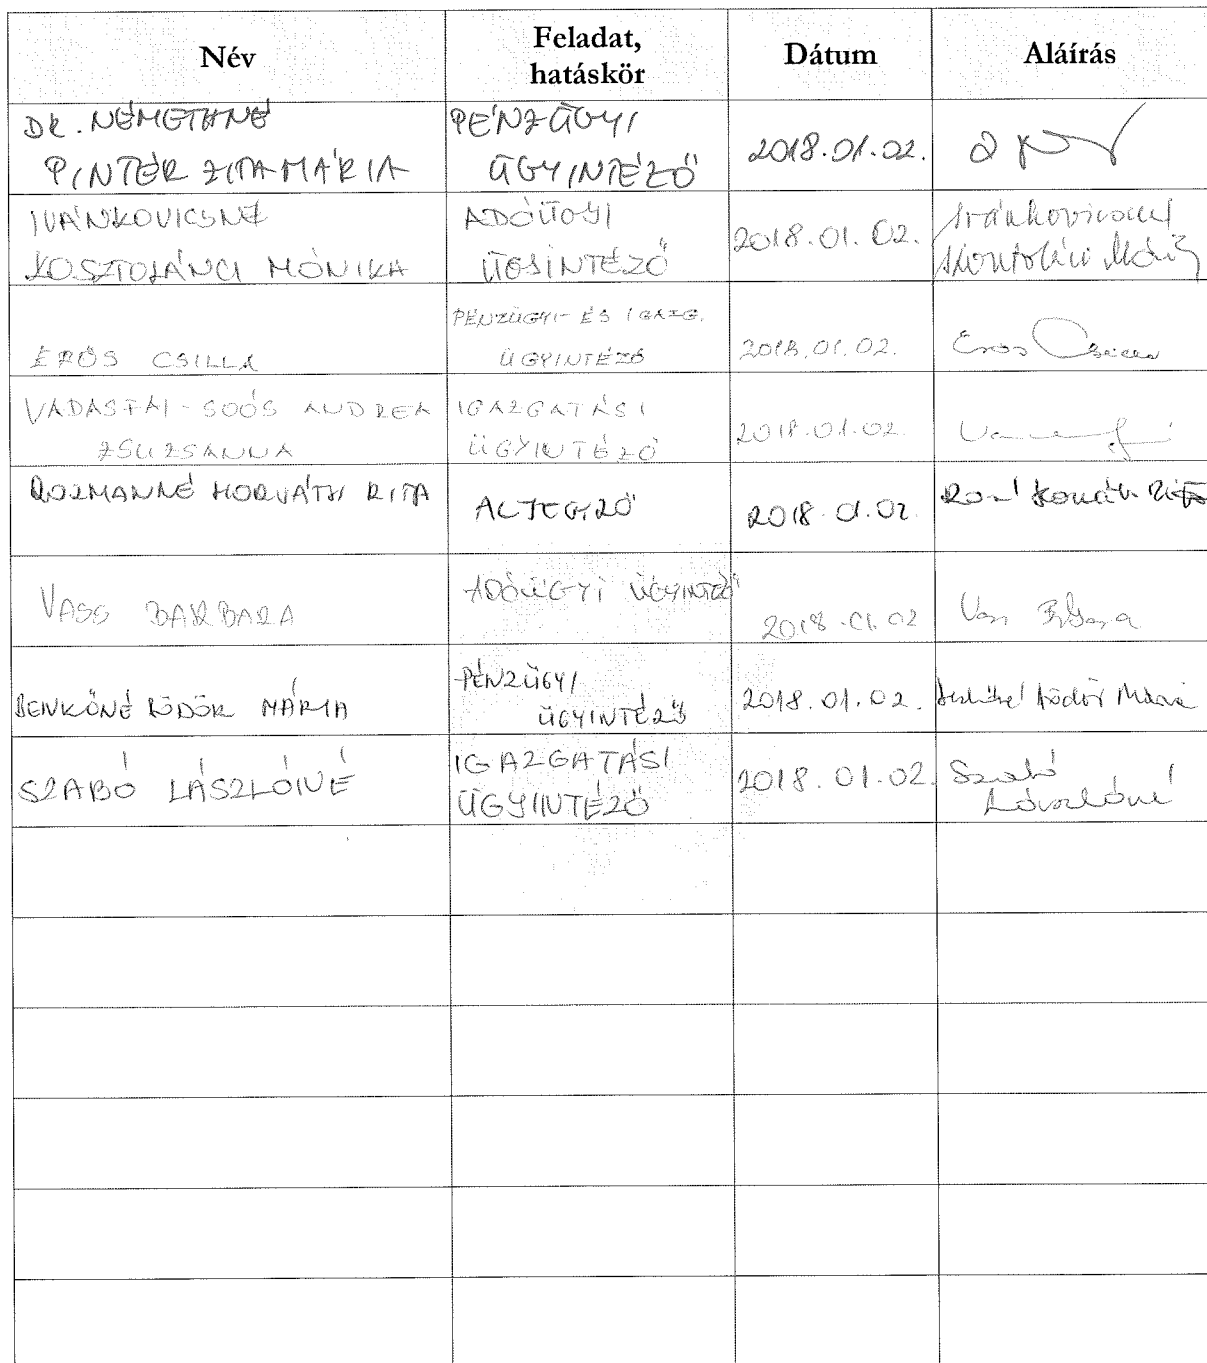 Név
Feladat,
hatáskör
Dátum
Aláírás
DR. NÉMETHNÉ
PINTÉR ZITA MÁRIA
PÉNZÜGYI
ÜGYINTÉZŐ
2018.01.02.
IVÁNKOVICSNÉ
KOSZTOLÁNCI MÓNIKA
ADÓÜGYI
ÜGYINTÉZŐ
2018.01.02.
Ivánkovicsné
Mónika
ERŐS CSILLA
PÉNZÜGYI- ÉS IGAZG.
ÜGYINTÉZŐ
2018.01.02.
Erős Csilla
VADASFAI-SOÓS ANDREA
ZSUZSANNA
IGAZGATÁSI
ÜGYINTÉZŐ
2018.01.02.
ROZMANNÉ HORVÁTH RITA
ALJEGYZŐ
2018.01.02.
Horváth Rita
VASS BARBARA
ADÓÜGYI ÜGYINTÉZŐ
2018.01.02
Vass Barbara
BENKŐNÉ FÖDÖR MÁRIA
PÉNZÜGYI
ÜGYINTÉZŐ
2018.01.02.
Mária
SZABÓ LÁSZLÓNÉ
IGAZGATÁSI
ÜGYINTÉZŐ
2018.01.02.
Szabó
Lászlóné